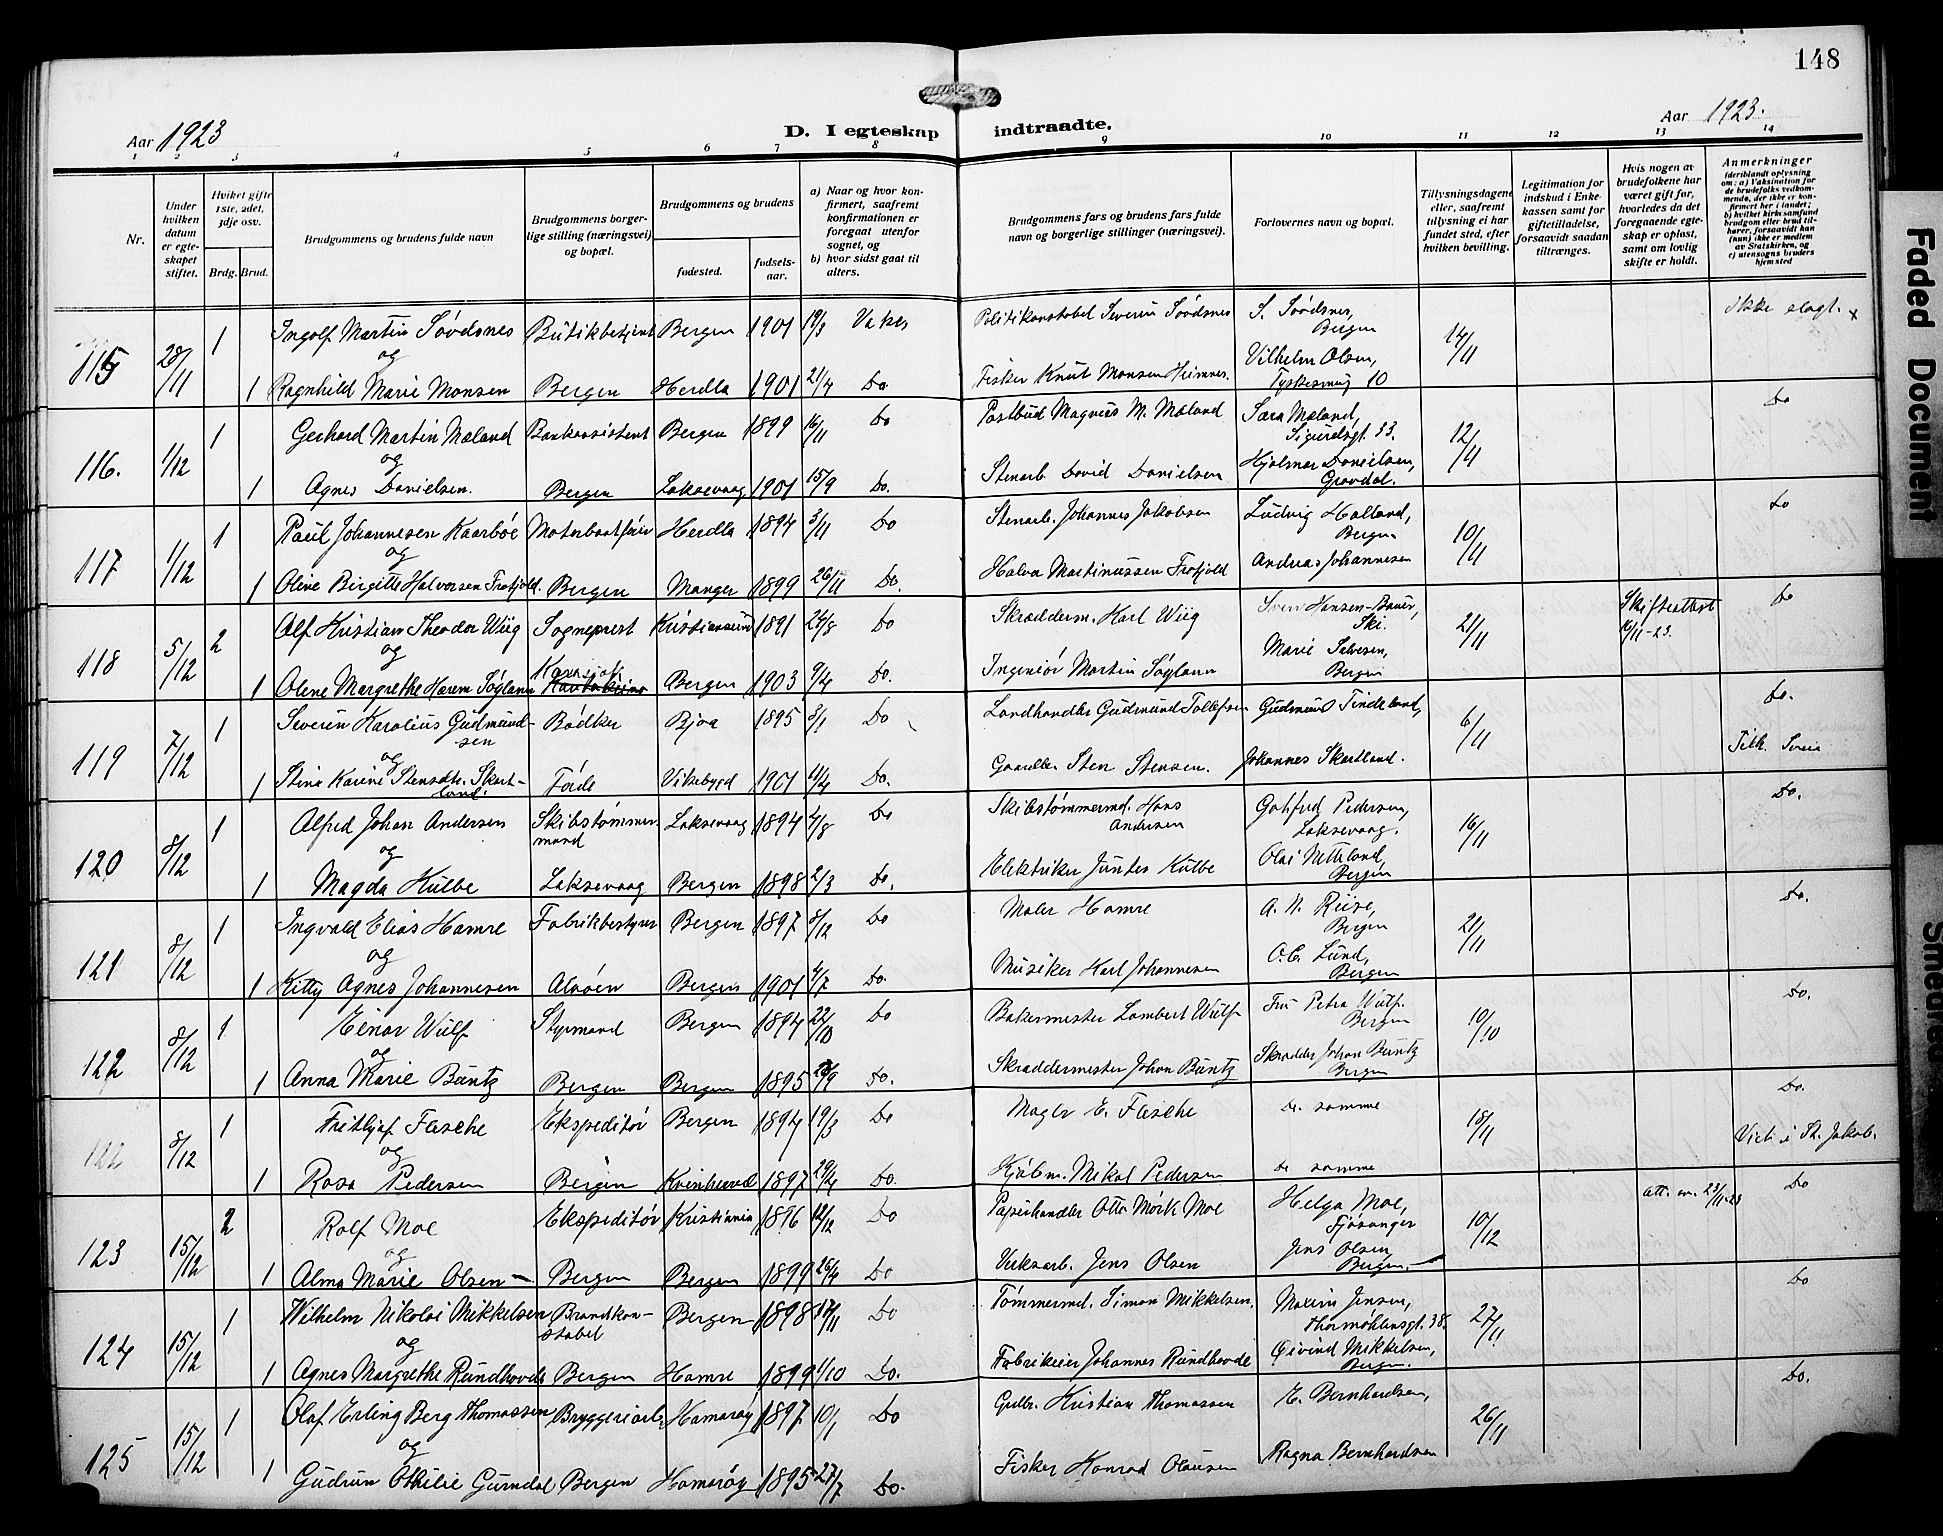 148
Aar 1923
D. I egteskap indtraadte.
Aar 1923.
1 2 3 4 5 6 7 8 9 10 11 12 13 14
Nr.
Under hvilken datum er egteskapet stiftet.
Hviket gifte 1ste, 2det, 3dje osv.
Brdg. Brud.
Brudgommens og brudens fulde navn
Brudgommens borgerlige stilling (næringsvei) og bopæl.
Brudgommens og brudens
fødested.
fødselsaar.
a) Naar og hvor konfirmert, saafremt konfirmationen er foregaat utenfor sognet, og
b) hvor sidst gaat til alters.
Brudgommens fars og brudens fars fulde navn og borgerlige stillinger (næringsvei).
Forlovernes navn og bopæl.
Tillysningsdagene eller, saafremt tillysning ei har fundet sted, efter hvilken bevilling.
Legitimation for indskud i Enkekassen samt for giftetilladelse, forsaavidt saadan tiltrænges.
Hvis nogen av brudefolkene har været gift før, hvorledes da det foregaaende egteskap er opløst, samt om lovlig skifte er holdt.
Anmerkninger
(deriblandt oplysning om: a) Vaksination for de brudefolks vedkommende, der ikke er konfirmert her i landet; b) hvilket kirkesamfund brudgom eller brud tilhører, forsaavidt han (hun) ikke er medlem av Statskirken, og c) utensogns bruders hjemsted
115 28/11 1 Ingolf Martin Søvdsnes Butikbetjent Bergen 1901 19/3 Politikonstabel Severin Søvdsnes S. Søvdsnes, Bergen 14/11 Ikke slegt.
og Vilhelm Olsen,
1 Ragnhild Marie Monsen Bergen Herdla 1901 21/4 Do. Fisker Knut Monsen Heimnes. Tyskesmug 10
116. 1/12 1 Gerhard Martin Mæland Bankassistent Bergen 1899 16/11 Do Postbud Magnus M. Mæland Sara Mæland, Sigurdsgt. 33. 12/11 Do
og Hjalmar Danielsen,
1 Agnes Danielsen. Bergen Laksevaag 1901 15/9 Do. Stenarb. David Danielsen Gravdal.
117 1/12 1 Paul Johannesen Kaarbøe Herdla 1894 3/11 Do Stenarb. Johannes Jakobsen Ludvig Halland, Bergen 10/11 Do
og
1 Oline Birgitte Halvorsen Bergen Manger 1899 26/11 Do. Halvor Martinussen Andreas Johannesen
118 5/12 2 Alf Kristian Theodor Wiig Sogneprest Kristiansund 1891 24/8 Do Skræddermr. Karl Wiig Hansen-Bauer, Ski. 21/11 Skifteattest 16/11-23. Do
og Karasjok Marie Salvesen,
1 Olene Margrethe Harem Søyland Kautokeino Bergen 1903 9/4 Do. Ingeniør Martin Søyland Bergen
119 7/12 1 Severin Karolius Gudmundsen Bødker Bjoa 1895 3/1 Do Landhandler Gudmund Tollefsen Gudmund Tindeland, 6/11 Do.
og
1 Stina Karine Stensdtr. Skartland. Førde Vikebygd 1901 11/4 Do. Gaardbr. Sten Stensen. Johannes Skartland. Tilh. Sveio
120 8/12 1 Alfred Johan Andersen Skibstømmermand Laksevaag 1894 4/8 Do Skibstømmermd. Hans Andersen Gotfred Pedersen, Laksevaag. 16/11 Do.
og Olai Netteland,
1 Magda Kulbe Laksevaag Bergen 1898 2/3 Do. Elektriker Juntes Kulbe Bergen
121 8/12 1 Ingvald Elias Hamre Fabrikbestyrer Bergen 1897 8/12 Do Maler Hamre A. N. Riise, Bergen 21/11 Do.
og O.C. Lund,
1 Kitty Agnes Johannesen Alvøen Bergen 1901 4/7 Do. Musiker Karl Johannesen Bergen
122 8/12 1 Einar Wulf Styrmand Bergen 1894 22/10 Do Bakermester Lambert Wulf Fru Petra Wulf. Bergen 10/10 Do.
og
1 Anna Marie Büntz Bergen Bergen 1895 Do. Skræddermester Johan Büntz Skrædder Johan Büntz Bergen
122 8/12 1 Fritljof Fasche Ekspeditør Bergen 1894 19/3 Do Magler E. Fasche De samme 18/11 Do.
og
1 Rosa Pedersen Bergen Kvinherred 1897 29/4 Do. Kjøbm. Mikal Pedersen De samme Viet i St. Jakob.
123 15/12 2 Rolf Moe Ekspeditør Kristiania 1896 12/12 Do Papirhandler Otto Mørk Moe Helga Moe, Fjøsanger 10/12 att. av. 23/11-23 Do
og Jens Olsen,
1 Alma Marie Olsen Bergen Bergen 1899 26/4 Do Verksarb. Jens Olsen Bergen.
124 15/12 1 Wilhelm Nikolai Mikkelsen Brandkonstabel Bergen 1898 17/11 Do Tømmermd. Simon Mikkelsen. Maxim Jensen, Thormøhlensgt. 38. 27/11 Do
og Øivind Mikkelsen,
1 Agnes Margrethe Rundhovde Bergen Hamre 1899 1/10 Do. Fabrikeier Johannes Rundhovde Bergen.
125 15/12 1 Olaf Erling Berg Thomassen Bryggeriarb. Hamarøy 1897 10/1 Do Kristian Thomassen E. Bernhardsen, 26/11 Do.
og
1 Gudrun Othilie Bergen Hamarøy 1895 27/7 Do. Fisker Konrad Olausen Ragna Bernhardsen
Faded Document